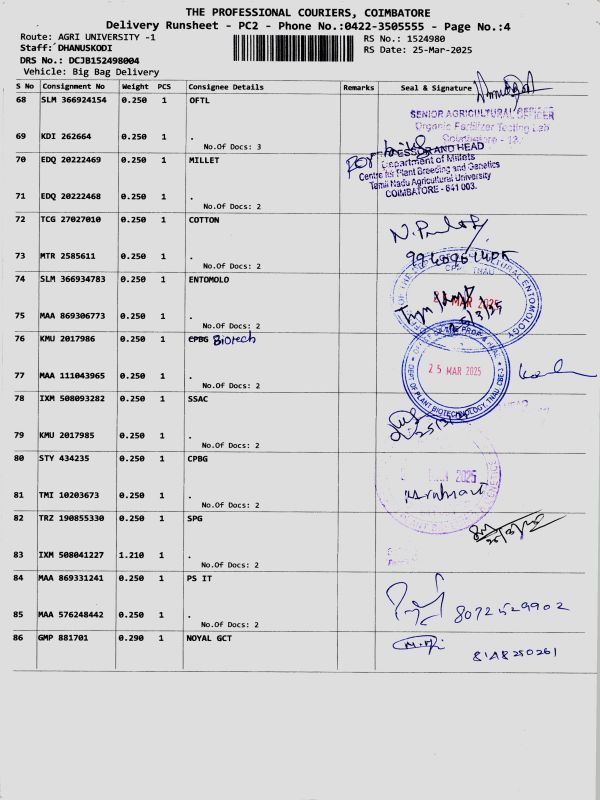 THE PROFESSIONAL COURIERS, COIMBATORE
Delivery Runsheet - PC2 - Phone No.:0422-3505555 - Page No.:4
Route: AGRI UNIVERSITY -1 RS No.: 1524980
Staff: DHANUSKODI RS Date: 25-Mar-2025
DRS No.: DCJB152498004
Vehicle: Big Bag Delivery
S No Consignment No Weight PCS Consignee Details Remarks Seal & Signature
68 SLM 366924154 0.250 1 OFTL
SENIOR AGRICULTURAL OFFICER
Organic Fertilizer Testing Lab
69 KDI 262664 0.250 1 .
No.Of Docs: 3
70 EDQ 20222469 0.250 1 MILLET
for AND HEAD
Department of Millets
Centre for Plant Breeding and Genetics
Tamil Nadu Agricultural University
COIMBATORE - 641 003.
71 EDQ 20222468 0.250 1 .
No.Of Docs: 2
72 TCG 27027010 0.250 1 COTTON
73 MTR 2585611 0.250 1 .
No.Of Docs: 2
74 SLM 366934783 0.250 1 ENTOMOLO
MAR 2025
75 MAA 869306773 0.250 1 .
No.Of Docs: 2
76 KMU 2017986 0.250 1 CPBG Biotech
25 MAR 2025
DEPT OF PLANT BIOTECHNOLOGY, TNAU, CBE-3
77 MAA 111043965 0.250 1 .
No.Of Docs: 2
78 IXM 508093282 0.250 1 SSAC
79 KMU 2017985 0.250 1 .
No.Of Docs: 2
80 STY 434235 0.250 1 CPBG
2025
81 TMI 10203673 0.250 1 .
No.Of Docs: 2
82 TRZ 190855330 0.250 1 SPG
83 IXM 508041227 1.210 1 .
No.Of Docs: 2
84 MAA 869331241 0.250 1 PS IT
8072529902
85 MAA 576248442 0.250 1 .
No.Of Docs: 2
86 GMP 881701 0.290 1 NOYAL GCT